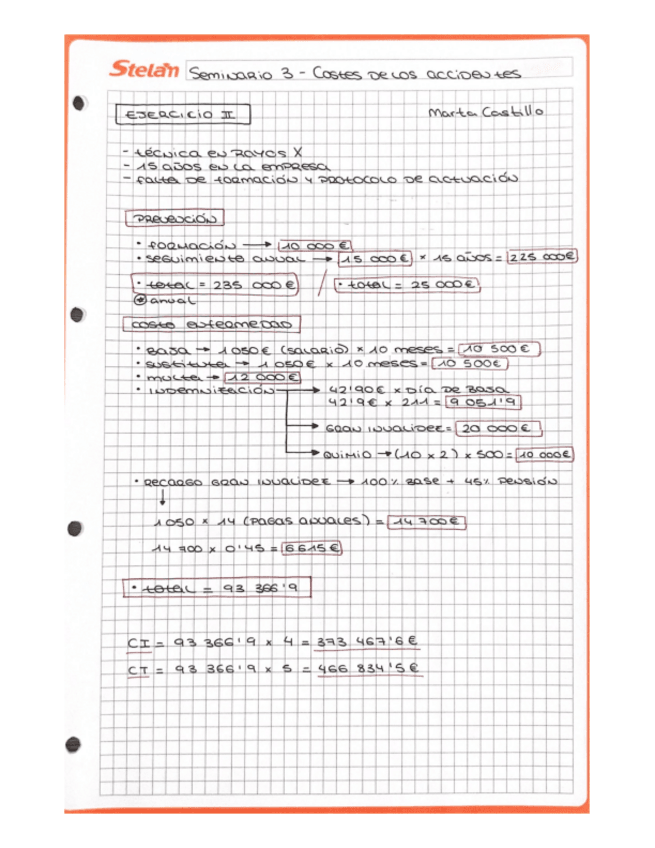 Stelan
Seminario 3 - Costes de los accidentes
EJERCICIO II
Marta Castillo
- técnica en Rayos X
- 15 años en la empresa
- falta de formación y protocolo de actuación
PREVENCIÓN
• formación → 10 000 €
• seguimiento anual → 15 000 € × 15 años = 225 000€
• total = 235 000 € / • total = 25 000€
* anual
Costo enfermedad
• BAJA → 1050€ (salario) × 10 meses = 10 500€
• sustituta → 1 050€ × 10 meses = 10 500€
• multa → 12 000€
• INDEMNIZACIÓN → 42'90€ × DÍA DE BAJA
42'9€ × 211 = 9 051'9
→ GRAN INVALIDEZ = 20 000€
→ QUIMIO → (10 × 2) × 500 = 10 000€
• RECARGO GRAN INVALIDEZ → 100% BASE + 45% PENSIÓN
↓
1050 × 14 (PAGAS ANUALES) = 14 700€
14 700 × 0'45 = 6615€
• total = 93 366'9
CI = 93 366'9 × 4 = 373 467'6€
CT = 93 366'9 × 5 = 466 834'5€